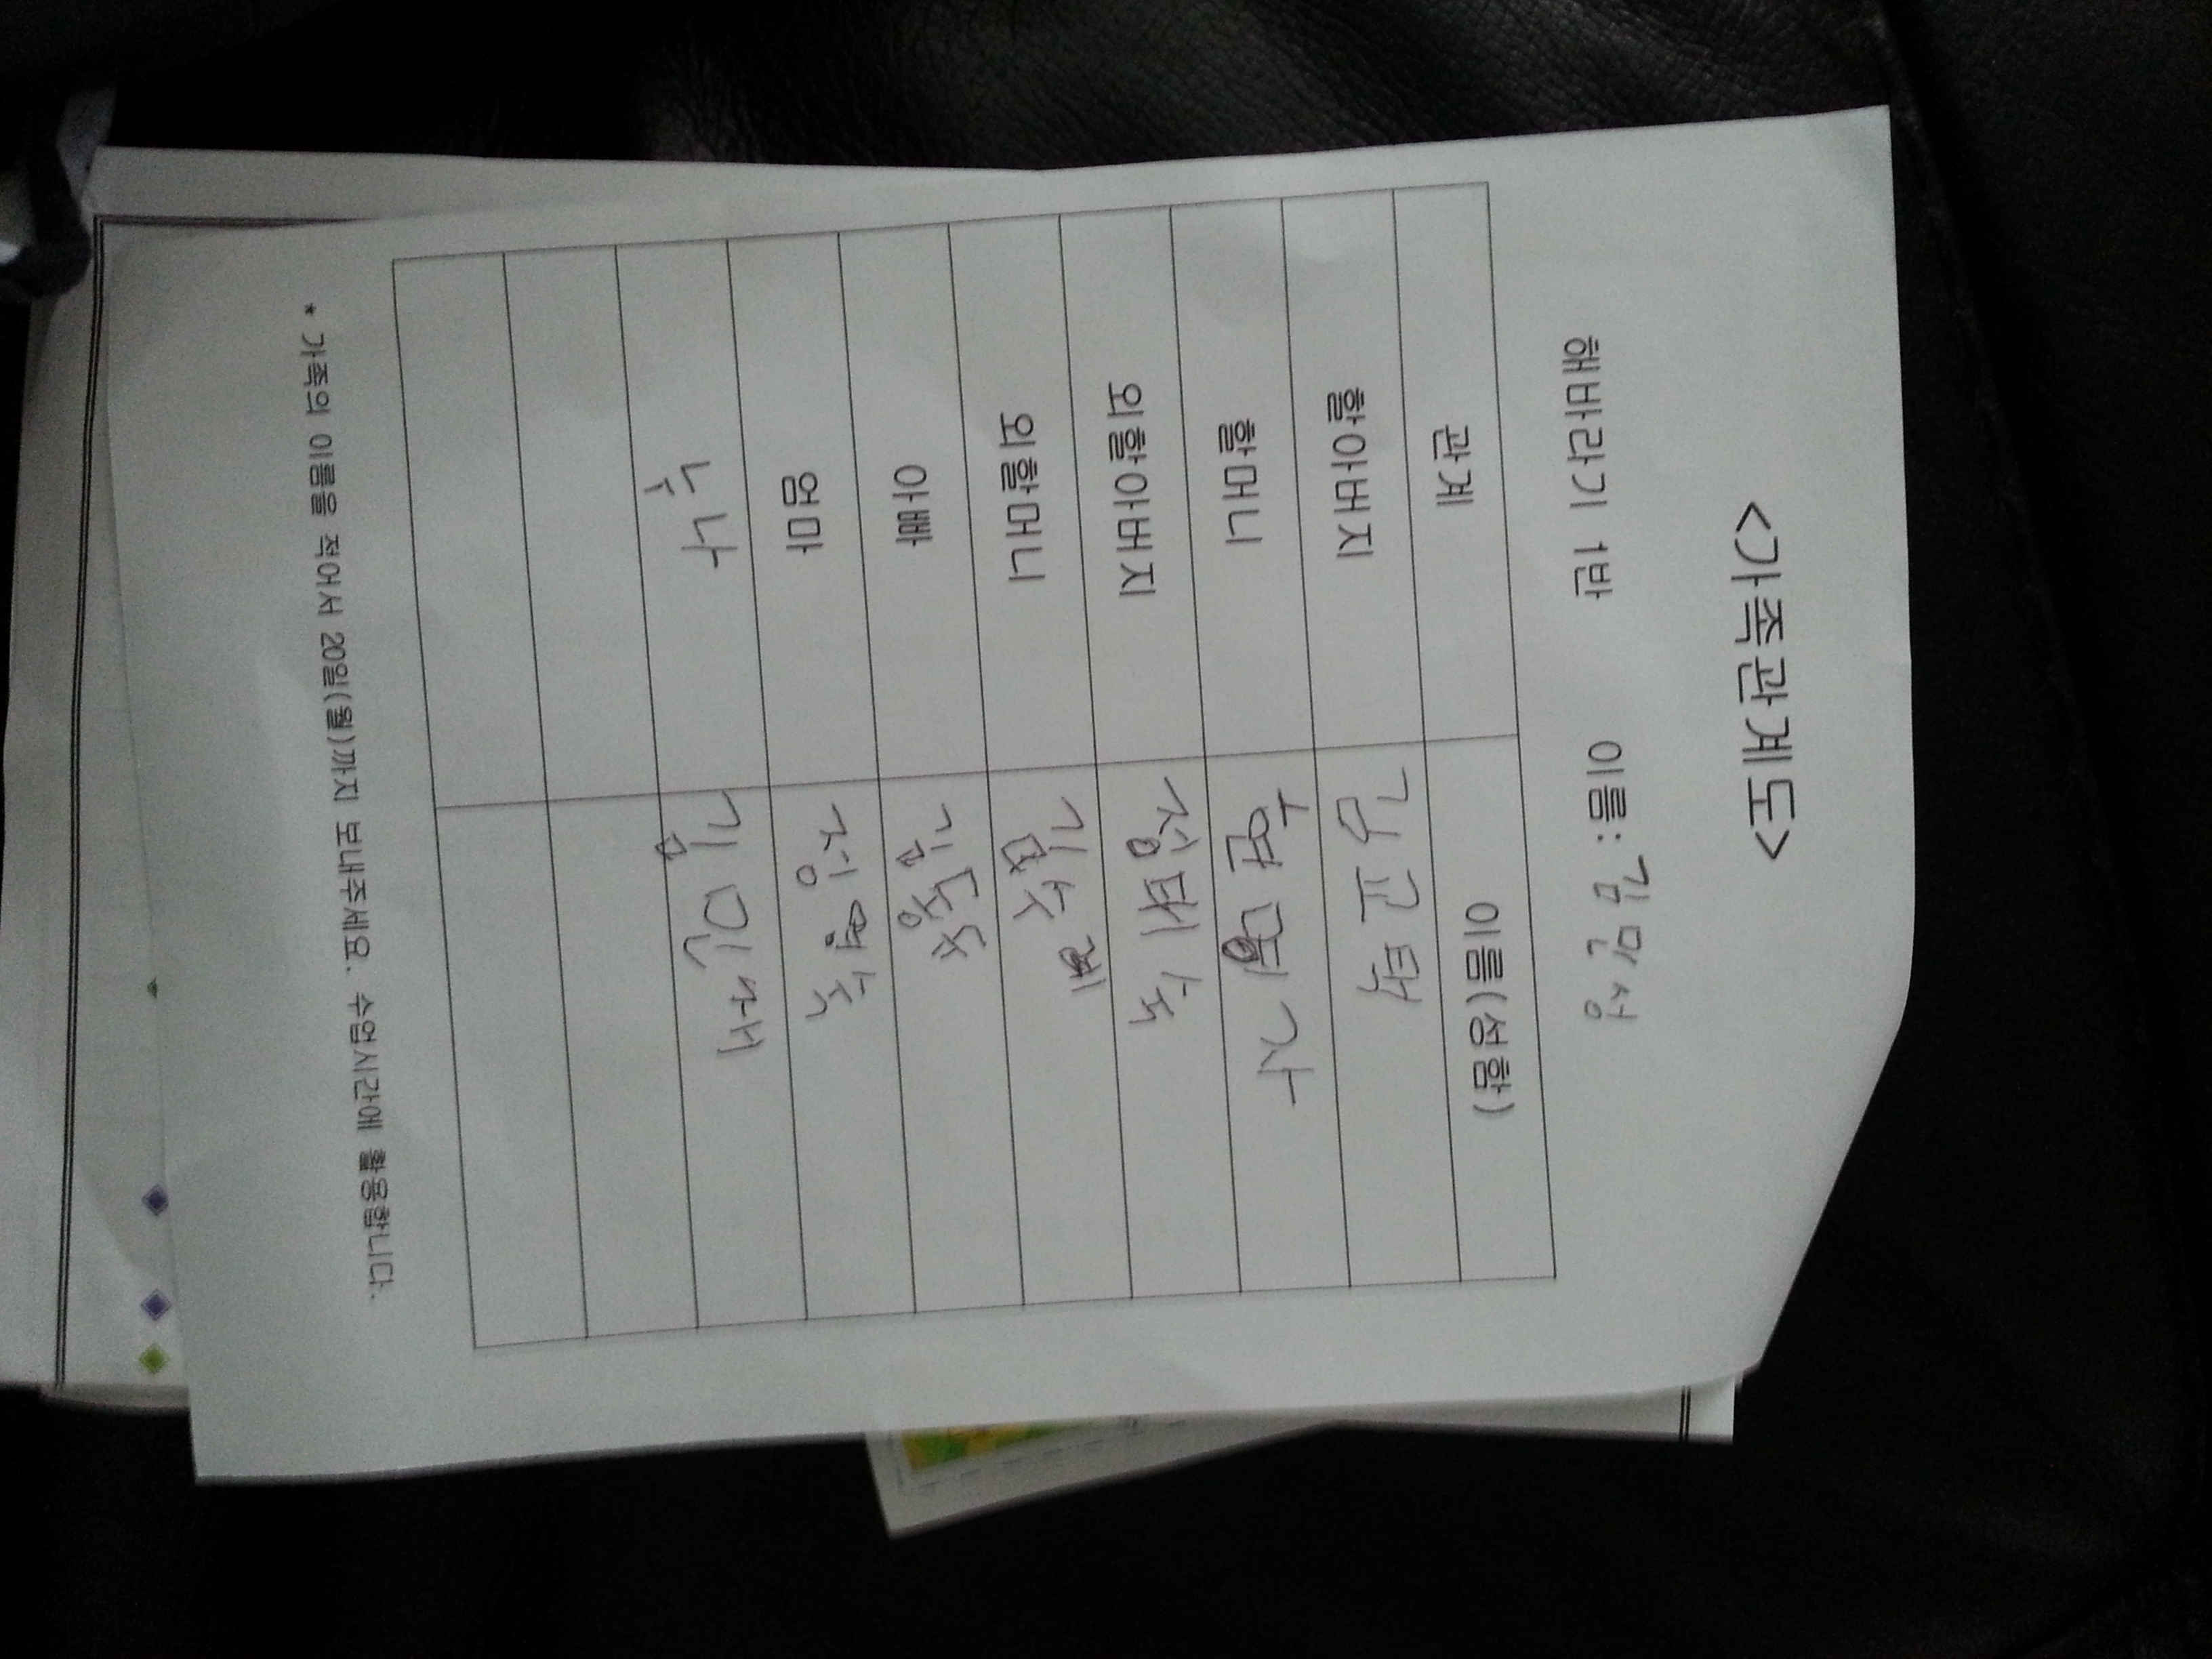 <가족관계도>
해바라기 1반 이름: 김민성
관계 이름(성함)
할아버지 김교택
할머니
외할아버지 정태식
외할머니 김수계
아빠 김동욱
엄마 정영숙
누나 김민서
* 가족의 이름을 적어서 20일(월)까지 보내주세요. 수업시간에 활용합니다.